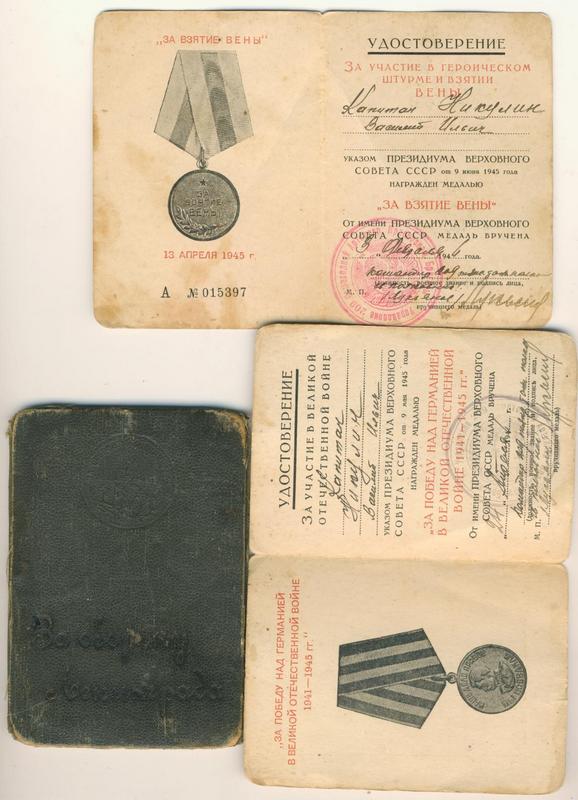 „ЗА ВЗЯТИЕ ВЕНЫ"
ЗА
ВЗЯТИЕ
ВЕНЫ
13 АПРЕЛЯ 1945 г.
А № 015397
УДОСТОВЕРЕНИЕ
ЗА УЧАСТИЕ В ГЕРОИЧЕСКОМ
ШТУРМЕ И ВЗЯТИИ
ВЕНЫ
Капитан Никулин
Василий Ильич
УКАЗОМ ПРЕЗИДИУМА ВЕРХОВНОГО
СОВЕТА СССР от 9 июня 1945 года
НАГРАЖДЕН МЕДАЛЬЮ
„ЗА ВЗЯТИЕ ВЕНЫ"
От имени ПРЕЗИДИУМА ВЕРХОВНОГО
СОВЕТА СССР МЕДАЛЬ ВРУЧЕНА
3 Февраля 194 года.
командир
М. П.
вручившего медаль)
УДОСТОВЕРЕНИЕ
ЗА УЧАСТИЕ В ВЕЛИКОЙ
ОТЕЧЕСТВЕННОЙ ВОЙНЕ
Капитан
Никулин
Василий Ильич
УКАЗОМ ПРЕЗИДИУМА ВЕРХОВНОГО
СОВЕТА СССР от 9 мая 1945 года
НАГРАЖДЕН МЕДАЛЬЮ
„ЗА ПОБЕДУ НАД ГЕРМАНИЕЙ
В ВЕЛИКОЙ ОТЕЧЕСТВЕННОЙ
ВОЙНЕ 1941—1945 гг."
От имени ПРЕЗИДИУМА ВЕРХОВНОГО
СОВЕТА СССР МЕДАЛЬ ВРУЧЕНА
командир
М. П.
вручившего медаль)
„ЗА ПОБЕДУ НАД ГЕРМАНИЕЙ
В ВЕЛИКОЙ ОТЕЧЕСТВЕННОЙ ВОЙНЕ
1941—1945 гг."
За оборону